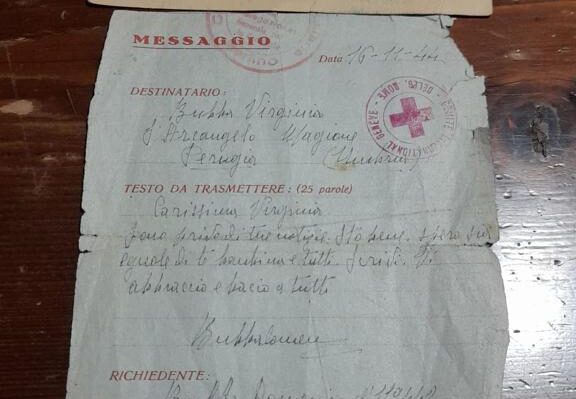 MESSAGGIO
Data 16-11-44
COMITÉ INTERNATIONAL GENÈVE - DELEG. ROME -
DESTINATARIO:
Virginia
S. Arcangelo Magione
Perugia (Umbria)
TESTO DA TRASMETTERE: (25 parole)
Carissima Virginia
Sono privo di tue notizie. Sto bene. spero sia
eguale di te bambina e tutti. Scrivi. Ti
abbraccio e bacio a tutti
RICHIEDENTE: